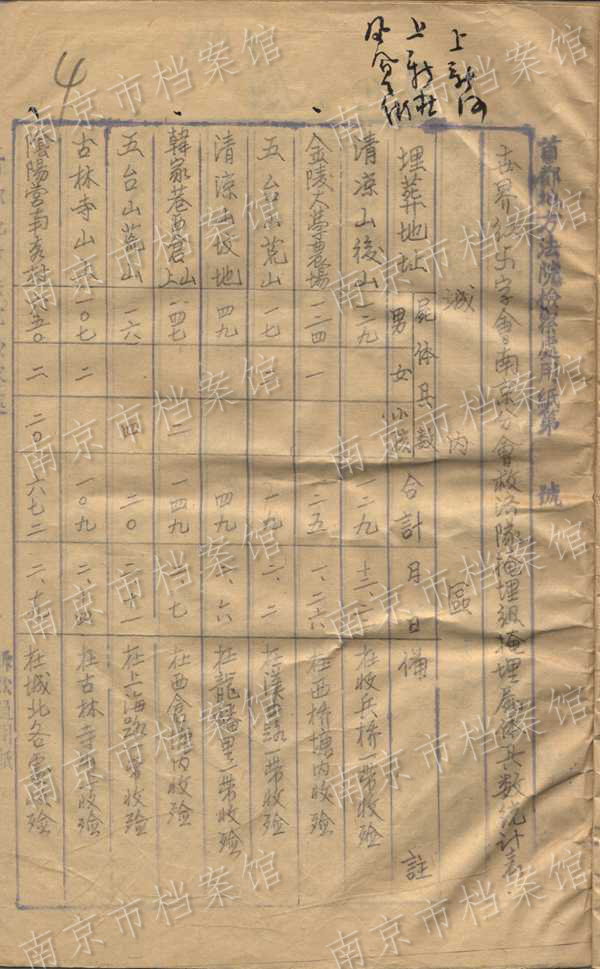 首都地方法院檢察處用紙第 號
世界紅卍字會南京分會救濟隊掩埋組掩埋屍體具數統計表
城 內 區
埋葬地址 屍体具數 男 女 小孩 合計 月日 備 註
清涼山後山 一二九 一二九 在收兵橋一帶收殮
金陵大學農場 一二四 一 一二五 一、二六 在西橋塘內收殮
五台山荒山 一七 二 一九 二、二 在漢中路一帶收殮
清涼山坡地 四九 四九 二、六 在龍蟠里一帶收殮
韓家巷西倉山上 一四七 二 一四九 二、七 在西倉塘內收殮
五台山荒山 一六 四 二〇 二、十一 在上海路一帶收殮
古林寺山上 一〇七 二 一〇九 二、十四 在古林寺一帶收殮
陰陽營南秀村 六五〇 二 二〇 六七二 二、十九 在城北各處收殮
上新河
4
南京市档案馆